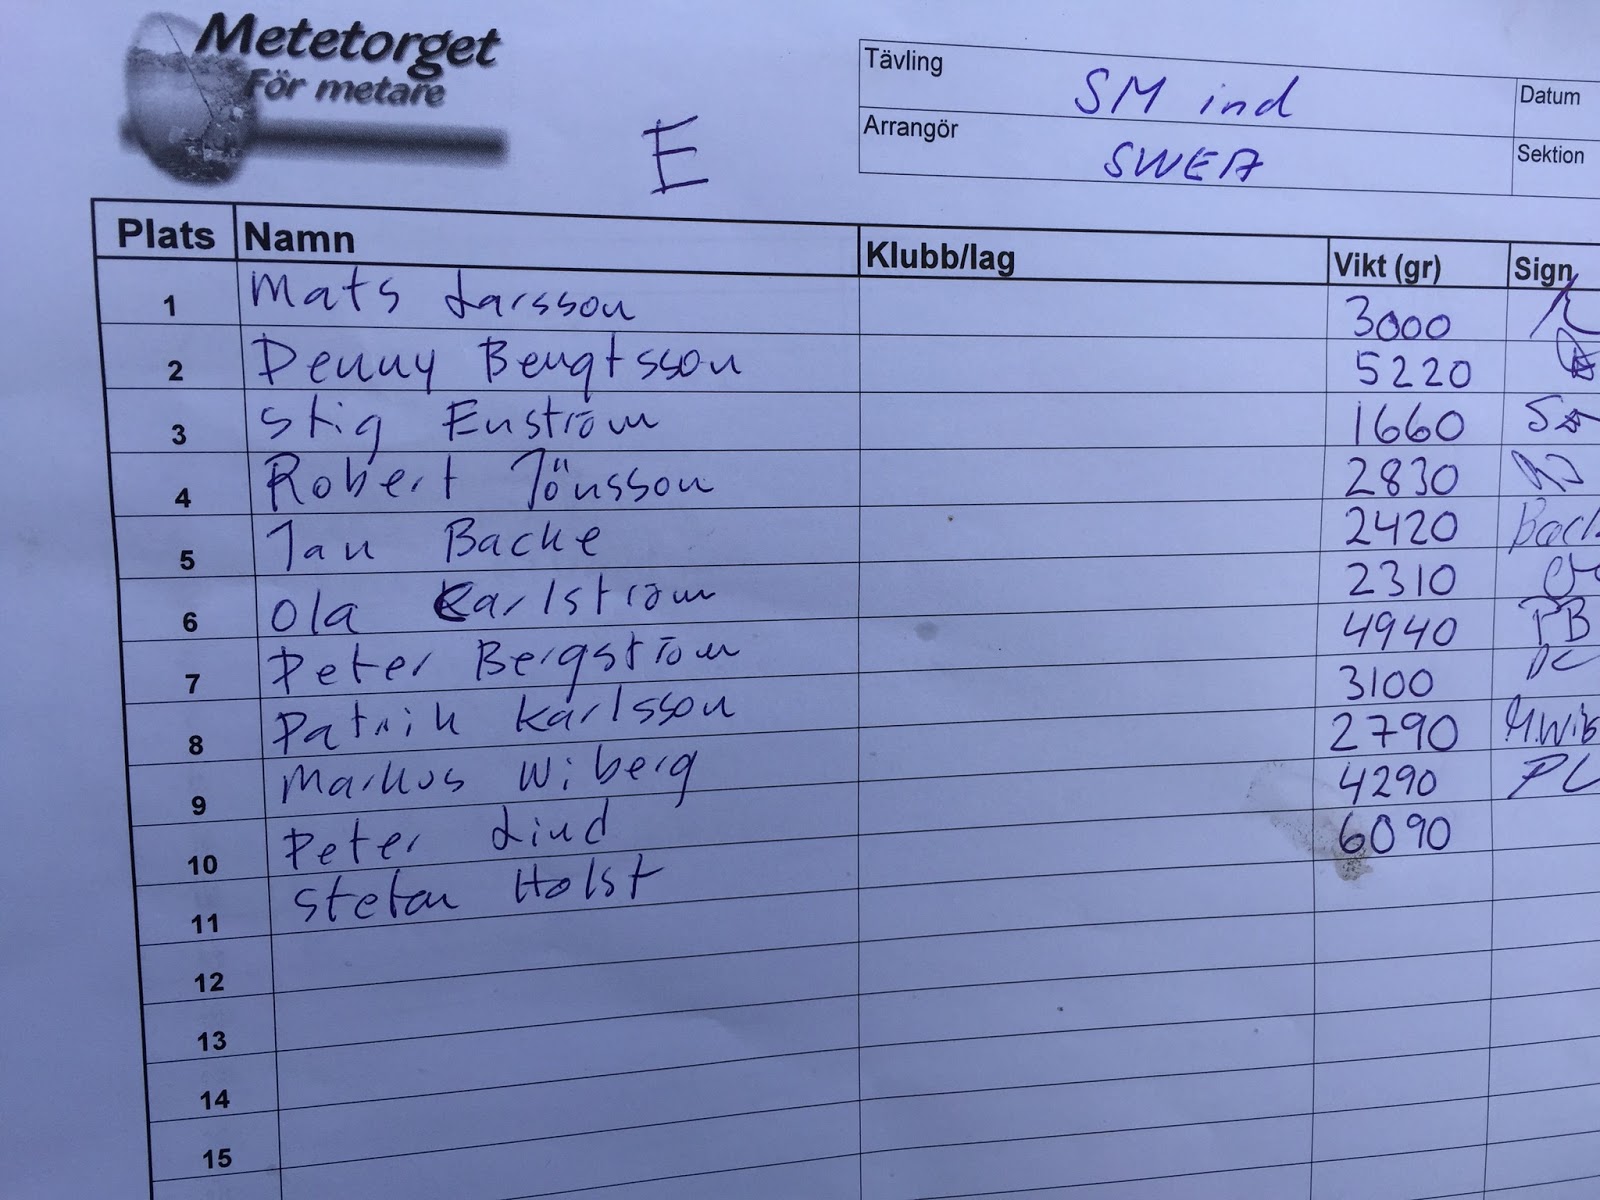 Metetorget
För metare
E
Tävling SM ind Datum
Arrangör SWEA Sektion
Plats Namn Klubb/lag Vikt (gr) Sign
1 Mats Larsson 3000
2 Denny Bengtsson 5220
3 Stig Enström 1660
4 Robert Jönsson 2830
5 Jan Backe 2420 Back
6 Ola Karlström 2310
7 Peter Bergström 4940 PB
8 Patrik Karlsson 3100 PK
9 Markus Wiberg 2790 M.Wib
10 Peter Lind 4290 PL
11 Stefan Holst 6090
12
13
14
15